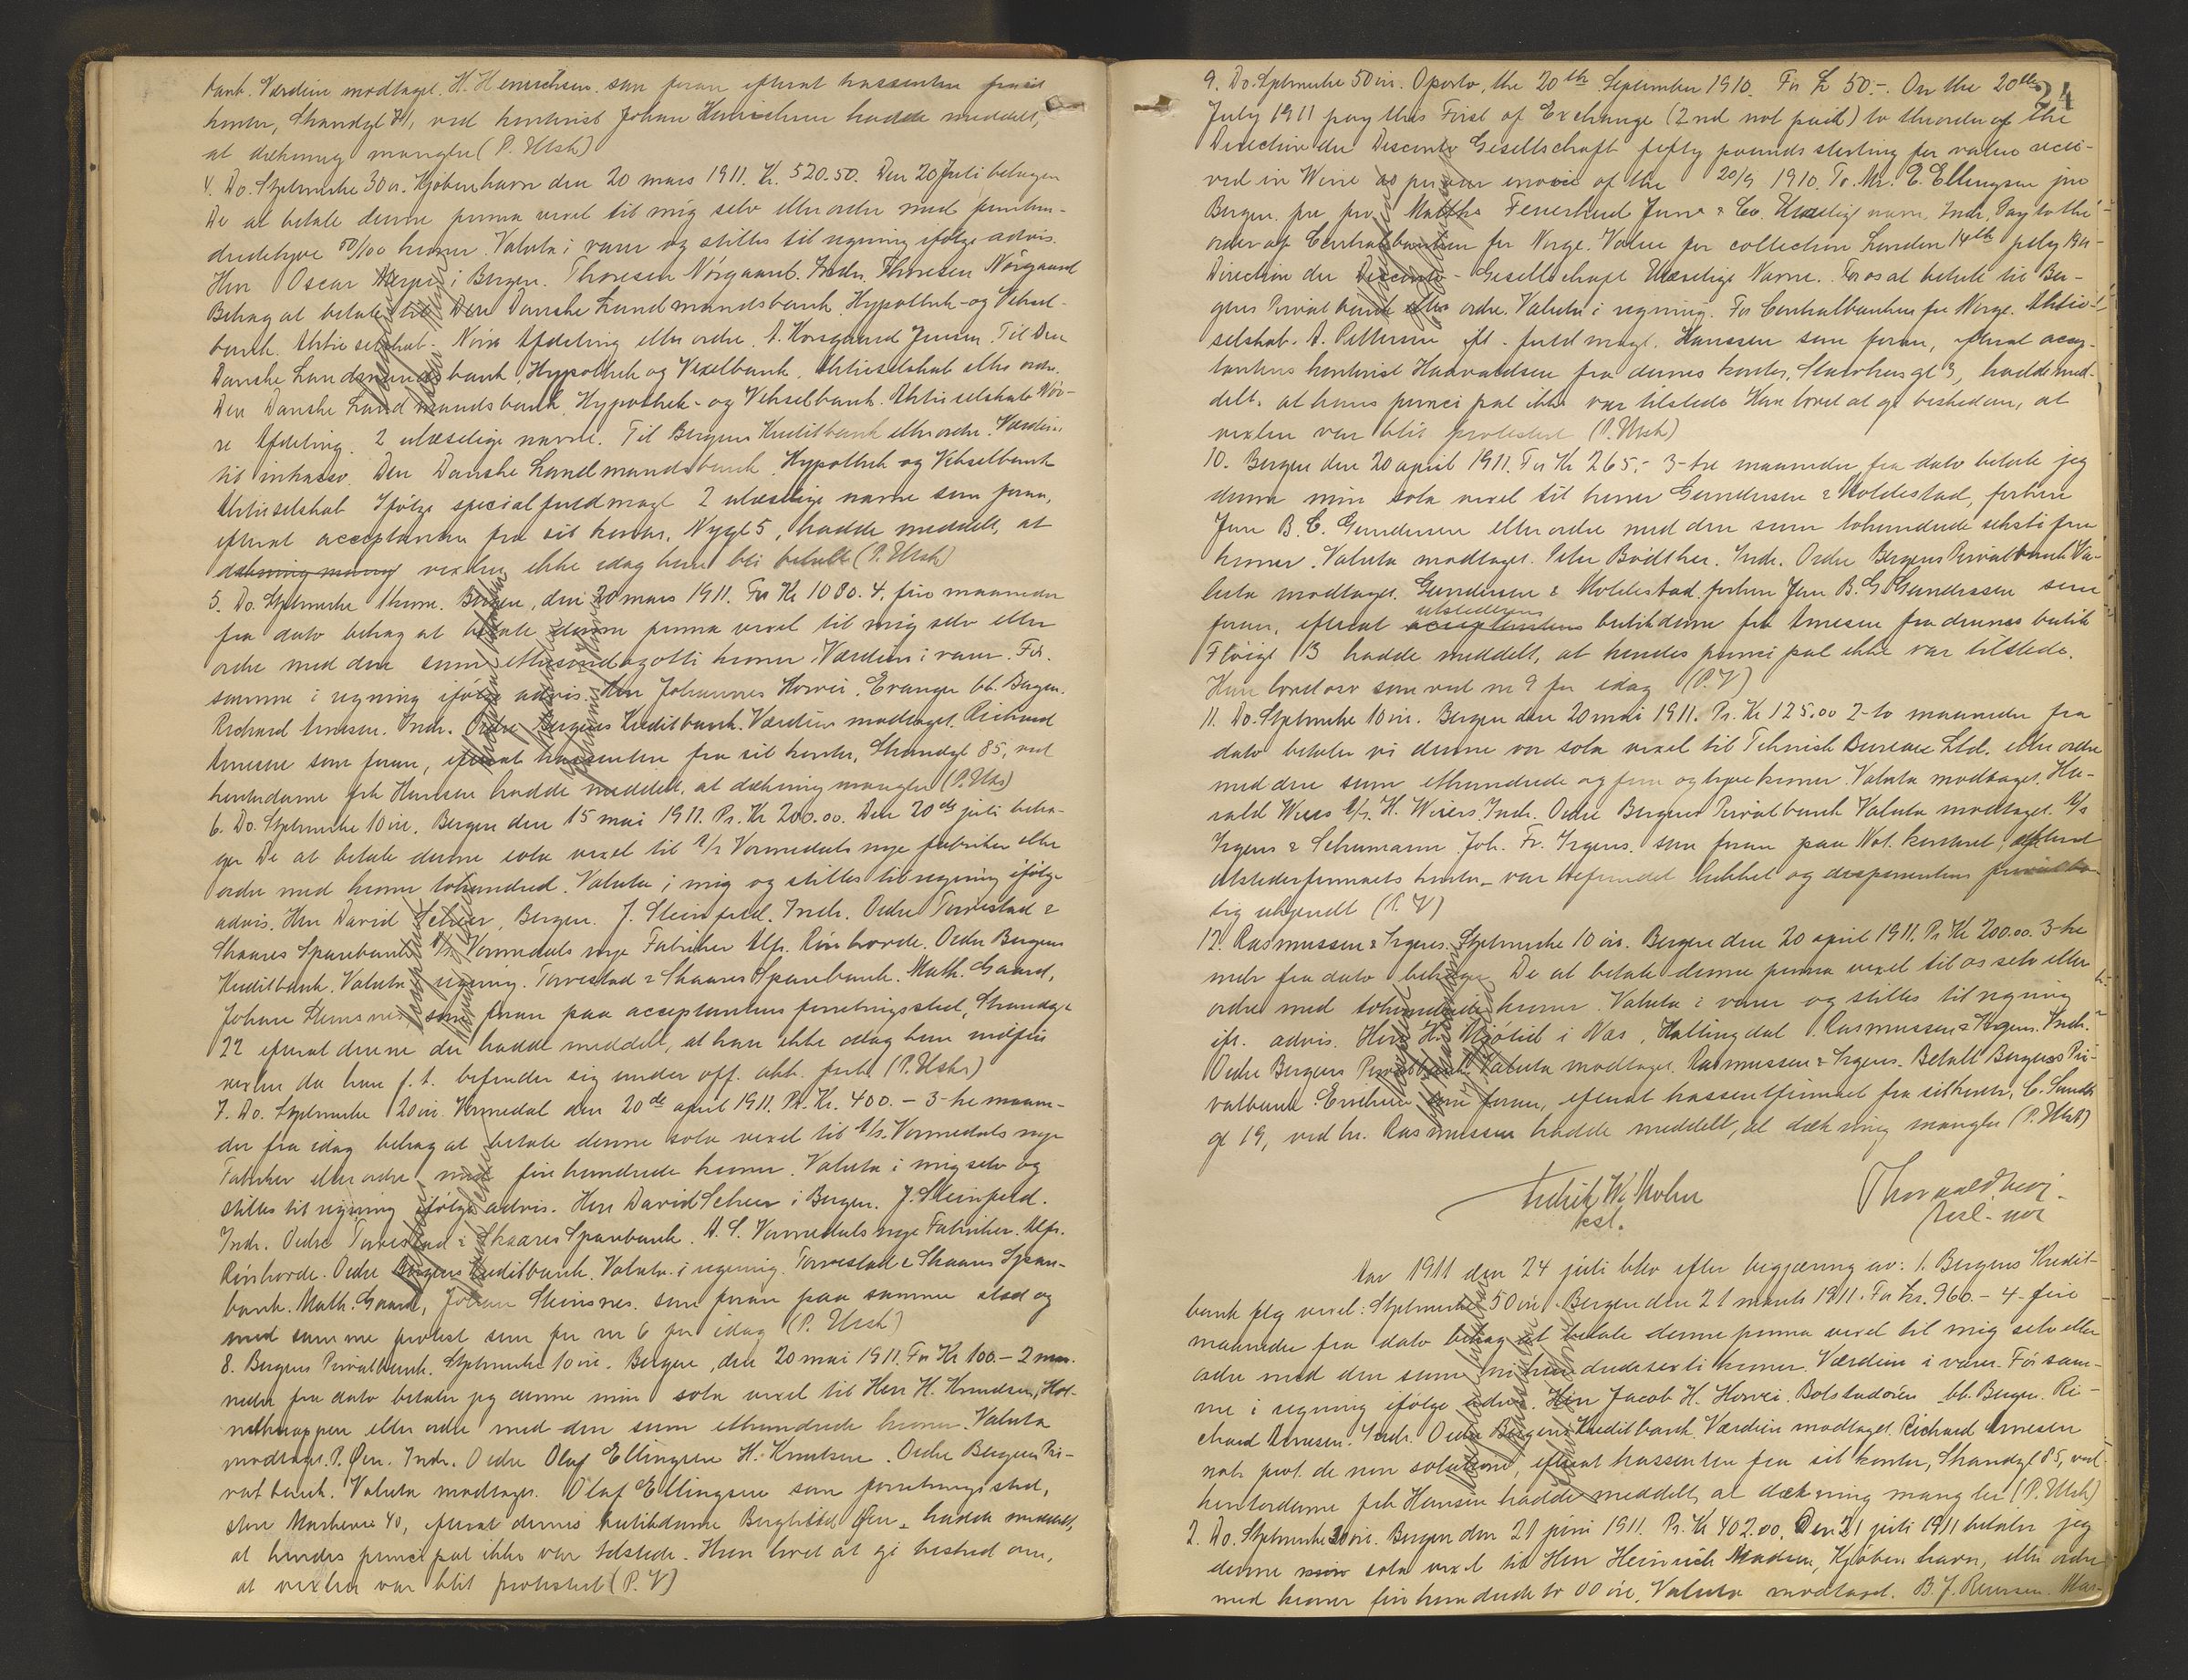 bank. Værdien modtaget. H. Henrichsen. som foran efterat kassenten fra sit
kontor, Strandgt, ved kontorist Johan Henrichsen hadde meddelt,
at dækning mangler (P. Utsh)
4. Do. Stplmerke 30 ør. Kjøbenhavn den 20 mars 1911. Kr. 520.50. Den 20 Juli behagen
De at betale denne prima vexel til mig selv eller ordre med femhun-
dredetyve 50/100 kroner. Valuta i varer og stilles til regning ifølge advis.
Herr Oscar i Bergen. Thoresen Nørgaard. Indr. Thoresen Nørgaard
Behag at betale til Den Danske Landmandsbank, Hypothek- og Veksel-
bank. Aktieselskab. Nørre Afdeling eller ordre. A. Korsgaard Jensen. Til Den
Danske Landmandsbank, Hypothek og Vexelbank, Aktieselskab eller ordre.
Den Danske Landmandsbank, Hypothek- og Vekselbank. Aktieselskab Nør-
re Afdeling. 2 ulæselige navne. Til Bergens Kreditbank eller ordre. Værdien
til inkasso. Den Danske Landmandsbank, Hypothek og Vekselbank
Aktieselskab Ifølge specialfuldmagt 2 ulæselige navne som foran,
efterat acceptanten fra sit kontor, Nygt 5, hadde meddelt, at
dækning mang vexlen ikke idag kunde bli betalt (P. Utsh)
5. Do. Stplmerke 1 krone. Bergen, den 20 mars 1911. For Kr 1080. 4. fire maaneder
fra dato behag at betale denne prima vexel til mig selv eller
ordre med den sum ettusendogotti kroner. Værdien i varer. Før.
samme i regning ifølge advis. Herr Johannes Horvei. Evanger bl. Bergen.
Richard Arnesen. Indr. Ordre Bergens Kreditbank. Værdien modtaget. Richard
Arnesen som foran, efterat kassenten fra sit kontor, Strandgt 85, ved
kontordame frk Hansen hadde meddelt, at dækning mangler (P. Utsh)
6. Do. Stplmerke 10 øre. Bergen den 15 mai 1911. Pr. Kr 200.00. Den 20de juli beha-
ger De at betale denne sola vexel til A/S Vormedals nye fabriker eller
ordre med kroner tohundred. Valuta i mig og stilles til regning ifølge
advis. Herr David Scheer, Bergen. J. Steinfeld. Indr. Ordre Torvestad &
Skaares Sparebank. A/S. Vormedals nye Fabriker Alfr. Rønhovde. Ordre Bergens
Kreditbank. Valuta i regning. Torvestad & Skaares Sparebank. Math. Gaard,
Johan Steinsnes. som foran paa acceptantens forretningssted, Strandgt
22 efterat denne der hadde meddelt, at han ikke idag kan indfri
vexlen da han f. t. befinder sig under off. akk. forh. (P. Utsh)
7. Do. Stplmerke 20 øre. Vormedal den 20de april 1911. Pr. Kr. 400. - 3 - tre maane-
der fra idag behag at betale denne sola vexel til A/S. Vormedals nye
Fabriker eller ordre med fire hundrede kroner. Valuta i mig selv og
stilles til regning ifølge advis. Herr David Scheer i Bergen. J. Steinfeld.
Indr. Ordre Torvestad & Skaares Sparebank. A. S. Vormedals nye Fabriker. Alfr.
Rønhovde. Ordre Bergens Kreditbank. Valuta i regning. Torvestad & Skaares Spare-
bank. Math. Gaard, Johan Steinsnes. som foran paa samme sted og
med samme protest som for nr 6 for idag (P. Utsh)
8. Bergens Privatbank. Stplmerke 10 øre. Bergen, den 20 mai 1911. For Kr 100. - 2 maa-
neder fra dato betaler jeg denne min sola vexel til Herr H. Knudsen,
eller ordre med den sum ethundrede kroner. Valuta
modtaget. P. Øen. Indr. Ordre Olaf Ellingsen H. Knutsen. Ordre Bergens Pri-
vatbank. Valuta modtaget. Olaf Ellingsen som forretningssted,
store Markevei 40, efterat dennes butikdame Øen hadde meddelt,
at hendes principal ikke var tilstede. Hun lovet at gi besked om,
at vexlen var blit protestert (P. V)
24
9. Do. Stplmerke 50 øre. Oporto, the 20th September 1910. For £ 50.-. On the 20th
July 1911 pay this First of Exchange (2nd not paid) to the order of the
Direction der Disconto Gesellschaft fifty pounds sterling for value recei-
ved in Wine as per our invoice of the 20/9 1910. To. Mr. E. Ellingsen jnr
Bergen. pre pro. Feuerheerd Junr & Co. Ulæselig navn. Indr. Pay to the
order of Centralbanken for Norge. Value for collection London 14th july
Direction der Disconto - Gesellschaft Ulæselige Navne. For os at betale til Ber-
gens Privatbank eller ordre. Valuta i regning. For Centralbanken for Norge. Aktie-
selskab. A. Pettersen ifl. fuldmagt. Hanssen som foran, efterat accep-
tantens kontorist Haavardsen fra dennes kontor, Starvhusgt 3, hadde med-
delt, at hans principal ikke var tilstede. Han lovet at gi besked om, at
vexlen var blit protestert (P. Utsh)
10. Bergen den 20 april 1911. For Kr 265.- 3-tre maaneder fra dato betaler jeg
denne min sola vexel til herrer Gundersen & Moldestad, forhen
Jens B. G. Gundersen eller ordre med den sum tohundrede sekstifem
kroner. Valuta modtaget. Peter Bødtker. Indr. Ordre Bergens Privatbank Va-
luta modtaget. Gundersen & Moldestad. forhen Jens B. G. Gundersen som
foran, efterat acceptantens utstederens butikdame frk Arnesen fra dennes butik
Fløigt 13 hadde meddelt, at hendes principal ikke var tilstede.
Hun lovet osv som ved nr 9 for idag (P. V)
11. Do. Stplmerke 10 øre. Bergen den 20 mai 1911. Pr. Kr 125.00 2-to maaneder fra
dato betaler vi denne vor sola vexel til Teknisk Bureau Ltd. eller ordre
med den sum ethundrede og fem og tyve kroner. Valuta modtaget. Ha-
rald Wiers A/S. H. Wiers. Indr. Ordre Bergens Privatbank Valuta modtaget. A/S
Irgens & Schumann Joh. Fr. Irgens. som foran paa Not. kontoret, efterat
utstederfirmaets kontor var befundet lukket og disponentens privatbo-
lig ukjendt (P. V)
12. Rasmussen & Irgens. Stplmerke 10 øre. Bergen den 20 april 1911. Pr Kr 200.00. 3-tre
mdr fra dato behager De at betale denne prima vexel til os selv eller
ordre med tohundrede kroner. Valuta i varer og stilles til regning
ifl. advis. Herr H. i Næs, Hallingdal. Rasmussen & Irgens. Indr.
Ordre Bergens Privatbank. Valuta modtaget. Rasmussen & Irgens. Betalt Bergens Pri-
vatbank. som foran, efterat kassentfirmaet fra sit kontor, C. Sundts
gt 19, ved hr. Rasmussen hadde meddelt, at dækning mangler (P. Utsh)
Fredrik W. Holm
kst.
Aar 1911 den 24 juli blev efter begjæring av: 1. Bergens Kredit-
bank flg vexel: Stplmerke 50 øre. Bergen den 21 marts 1911. For Kr. 960. - 4 - fire
maaneder fra dato behag at betale denne prima vexel til mig selv eller
ordre med den sum nihundredesexti kroner. Værdien i varer. Før sam-
me i regning ifølge advis. Herr Jacob H. Horvei. Bolstadøren bl. Bergen. Ri-
chard Arnesen. Indr. Ordre Bergens Kreditbank. Værdien modtaget. Richard Arnesen
not. prot. de non solutione, efterat kassenten fra sit kontor, Strandgt 85, ved
kontordame frk Hansen hadde meddelt, at dækning mangler (P. Utsh)
2. Do. Stplmerke 20 øre. Bergen den 21 juni 1911. Pr. Kr 402.00. Den 21 juli 1911 betaler jeg
denne min sola vexel til Herr Heinrich Madsen, Kjøbenhavn, eller ordre
med kroner fire hundrede to 00 øre. Valuta modtaget. B. J.